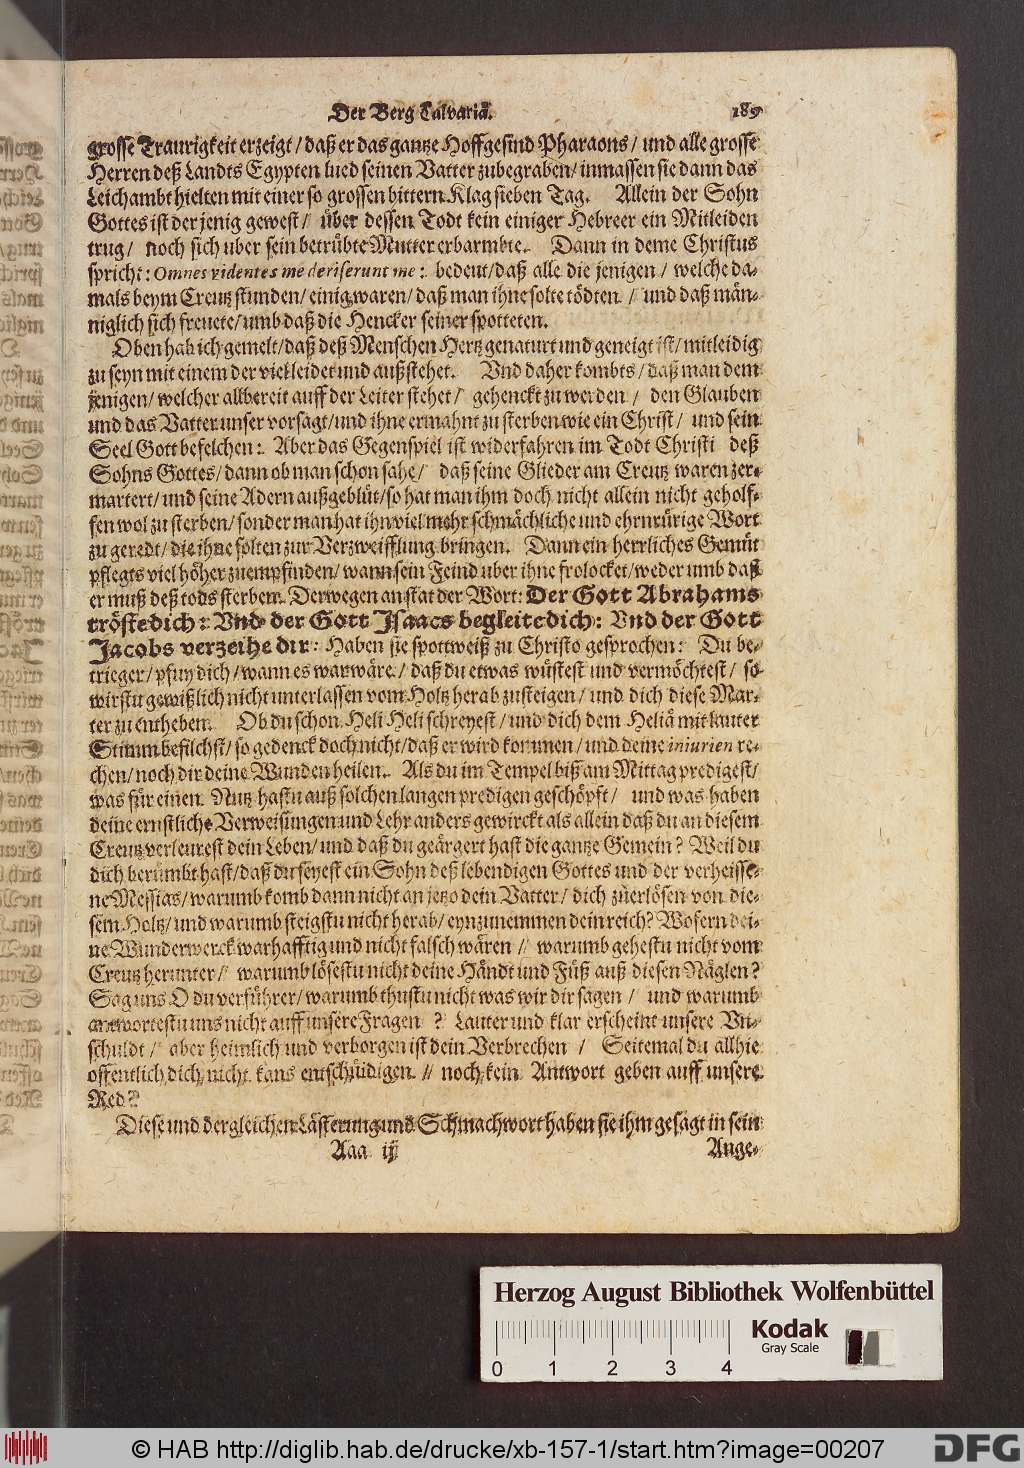 Der Berg Calvariæ. 189
grosse Traurigkeit erzeigt / daß er das gantze Hoffgesind Pharaons / und alle grosse
Herren deß Landts Egypten lued seinen Vatter zubegraben / inmassen sie dann das
Leichambt hielten mit einer so grossen bittern Klag sieben Tag. Allein der Sohn
Gottes ist der jenig gewest / über dessen Todt kein einiger Hebreer ein Mitleiden
trug / noch sich uber sein betrübte Mutter erbarmbte. Dann in deme Christus
spricht: Omnes videntes me deriserunt me: bedeut / daß alle die jenigen / welche da-
mals beym Creutz stunden / einig waren / daß man ihne solte tödten / und daß män-
niglich sich freuete / umb daß die Hencker seiner spotteten.
Oben hab ich gemelt / daß deß Menschen Hertz genaturt und geneigt ist / mitleidig
zu seyn mit einem der viel leidet und außstehet. Vnd daher kombts / daß man dem
jenigen / welcher allbereit auff der Leiter stehet / gehenckt zu werden / den Glauben
und das Vatter unser vorsagt / und ihne ermahnt zu sterben wie ein Christ / und sein
Seel Gott befelchen: Aber das Gegenspiel ist widerfahren im Todt Christi deß
Sohns Gottes / dann ob man schon sahe / daß seine Glieder am Creutz waren zer-
martert / und seine Adern außgeblüt / so hat man ihm doch nicht allein nicht geholf-
fen wol zu sterben / sonder man hat ihn viel mehr schmächliche und ehrnrürige Wort
zu geredt / die ihne solten zur Verzweifflung bringen. Dann ein herrliches Gemüt
pflegts viel höher zu empfinden / wann sein Feind uber ihne frolocket / weder umb daß
er muß deß tods sterben. Derwegen an stat der Wort: Der Gott Abrahams
tröste dich: Vnd der Gott Isaacs begleite dich: Vnd der Gott
Jacobs verzeihe dir: Haben sie spottweiß zu Christo gesprochen: Du be-
trieger / pfuy dich / wann es war wäre / daß du etwas wüstest und vermöchtest / so
wirstu gewißlich nicht unterlassen vom Holtz herab zusteigen / und dich diese Mar-
ter zu entheben. Ob du schon Heli Heli schreyest / und dich dem Heliä mit lauter
Stimm befilchst / so gedenck doch nicht / daß er wird kommen / und deine iniurien re-
chen / noch dir deine Wunden heilen. Als du im Tempel biß am Mittag predigest /
was für einen Nutz hastu auß solchen langen predigen geschöpft / und was haben
deine ernstliche Verweisungen und Lehr anders gewirckt als allein daß du an diesem
Creutz verleurest dein Leben / und daß du geärgert hast die gantze Gemein? Weil du
dich berümbt hast / daß du seyest ein Sohn deß lebendigen Gottes und der verheisse-
ne Messias / warumb komb dann nicht an jetzo dein Vatter / dich zu erlösen von die-
sem Holtz / und warumb steigstu nicht herab / eynzunemmen dein reich? Wofern dei-
ne Wunderwerck warhafftig und nicht falsch wären / warumb gehestu nicht vom
Creutz herunter / warumb lösestu nicht deine Händt und Füß auß diesen Näglen?
Sag uns O du verführer / warumb thustu nicht was wir dir sagen / und warumb
antwortestu uns nicht auff unsere Fragen ? Lauter und klar erscheint unsere Vn-
schuldt / aber heimlich und verborgen ist dein Verbrechen / Seitemal du allhie
offentlich dich nicht kans entschüidigen // noch kein Antwort geben auff unsere
Red?
Diese und dergleichen Lästerung und Schmachwort haben sie ihm gesagt in sein
Aaa ij Ange-
Herzog August Bibliothek Wolfenbüttel
Kodak
Gray Scale
0 1 2 3 4
© HAB http://diglib.hab.de/drucke/xb-157-1/start.htm?image=00207
DFG